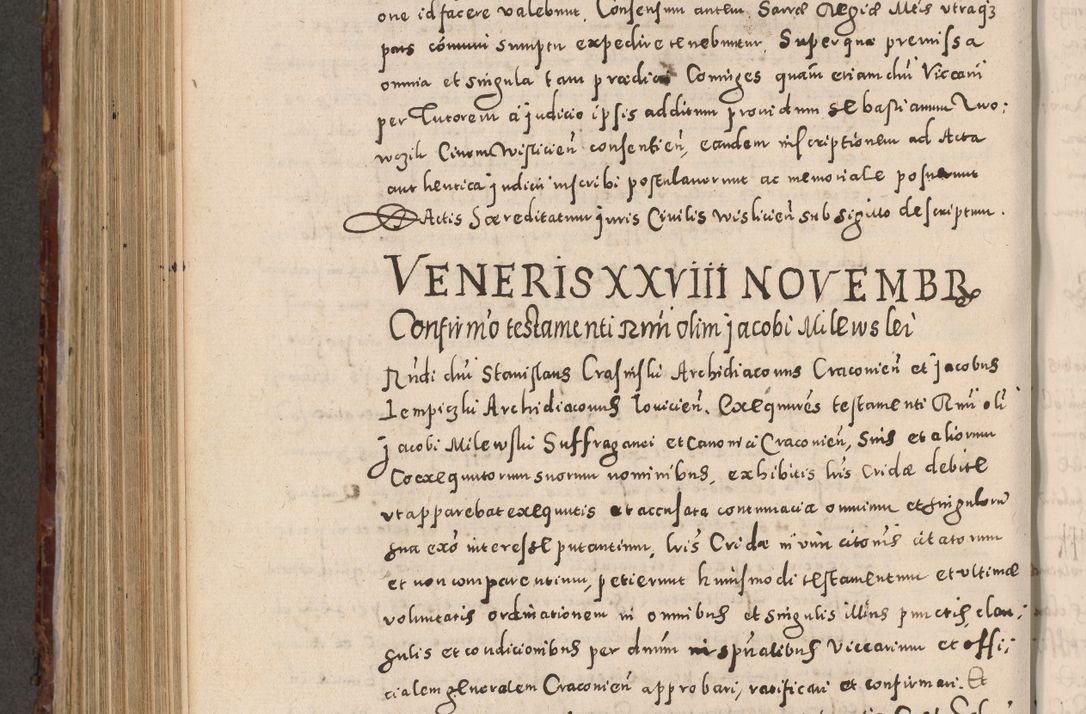 one id facere valebunt. Consensum autem Sacræ Regiæ Mtis utraq3
pars cómuni sumptu expedire tenebuntur, Super quæ premissa
omnia et singula tam prædicti Coniuges quam etiam dni Viccarii
per Tutorem a judicio ipsis additum providum Sebastianum Two:
wczik Civem Wisliciẽn consentiẽn, eandem inscriptionem ad Acta
authentica judicii inscribi postulaverunt ac memoriale posuerunt
Actis Hæreditatum juris Civilis wisliciẽn sub sigillo descriptum.
VENERIS XXVIII NOVEMBR
Confirmo testamenti Rmi olim jacobi Milewslei
Rñdi dni Stanislaus Crasinski Archidiaconus Craconieñ et jacobus
Lempiczki Archidiaconus Lovicieñ. Exequutores testamenti Rmi oli
jacobi Milewski Suffraganei et Canonici Cracovieñ, Suis et aliorum
Coexequutorum suorum nominibus, exhibitis lris Cridæ debite
ut apparebat exequutis et accusata contumacia omnium et singulorũ
sua exõ interesse putantium, lris Cridæ in vim citonis citatorum
et non comparentium, petierunt huiusmodi testamentum et ultimæ
voluntatis ordinationem in omnibus et singulis illius punctis, clau:
sulis et condicionibus per dnum in spũalibus Viccarium et offi:
cialem generalem Cracovieñ approbari, ratificari et confirmari. Et